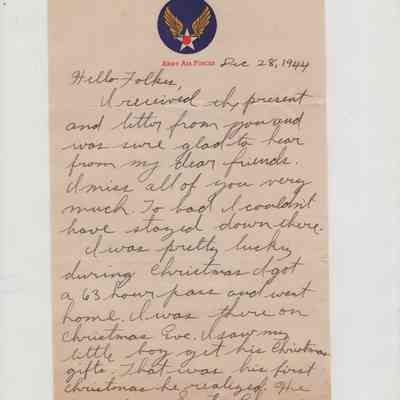 ARMY AIR FORCES
Dec 28, 1944
Hello Folkes,
I received thy present
and letter from you and
was sure glad to hear
from my dear friends.
I miss all of you very
much. To bad I couldn't
have stayed down there.
I was pretty lucky
during Christmas I got
a 63 hour pass and went
home. I was there on
Christmas Eve. I saw my
little boy get his Christmas
gifts. That was his first
Christmas he realized. He